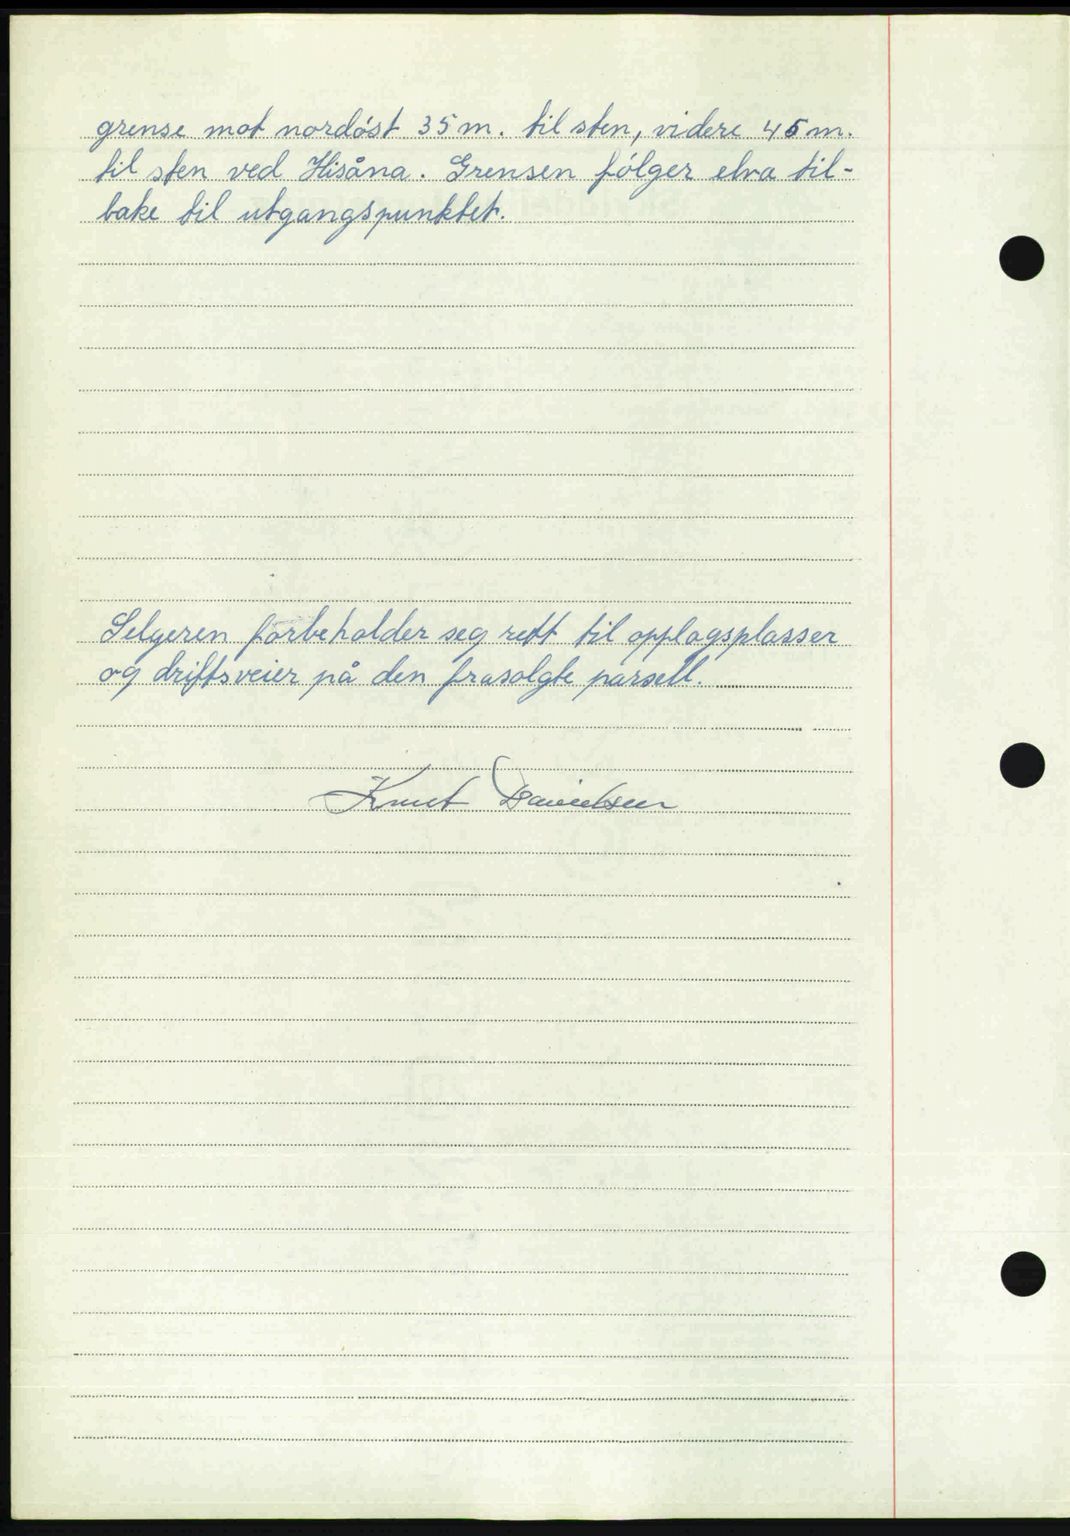 grense mot nordóst 35 m. til sten, videre 45 m.
til sten ved Hisåna. Grensen fólger elva til-
bake til utgangspunktet.
Selgeren forbeholder seg rett til opplagsplasser
og driftsveier på den frasolgte parsell.
Knut Danielsen